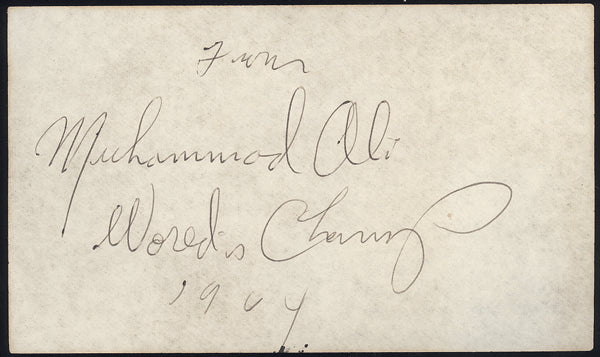 From
Muhammad Ali
World's Champ
1964